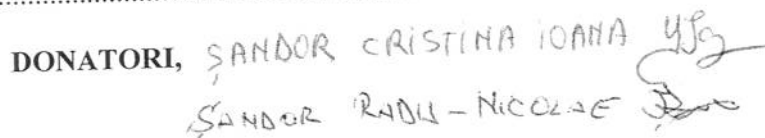 DONATORI, ȘANDOR CRISTINA IOANA
ȘANDOR RADU-NICOLAE